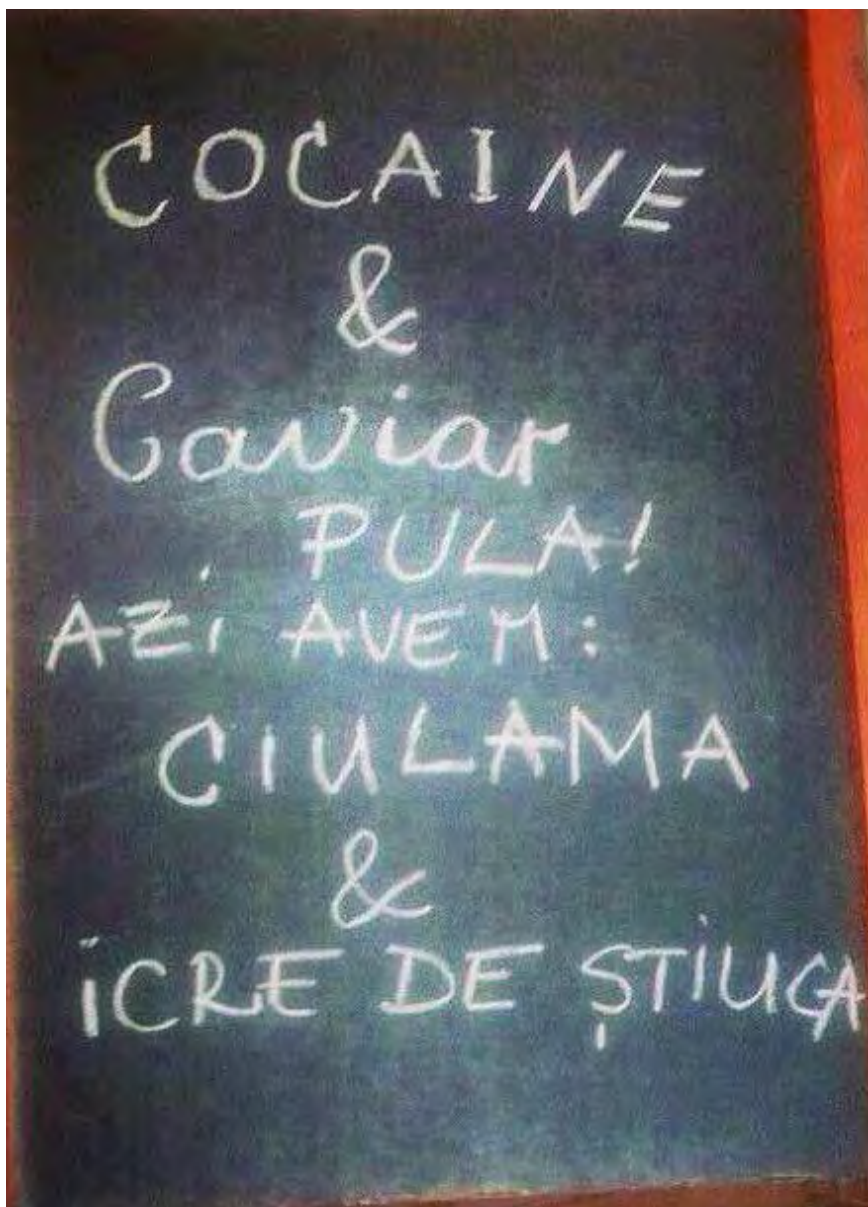 COCAINE
&
Caviar
PULA!
AZi AVEM:
CIULAMA
&
iCRE DE ȘTiUCA